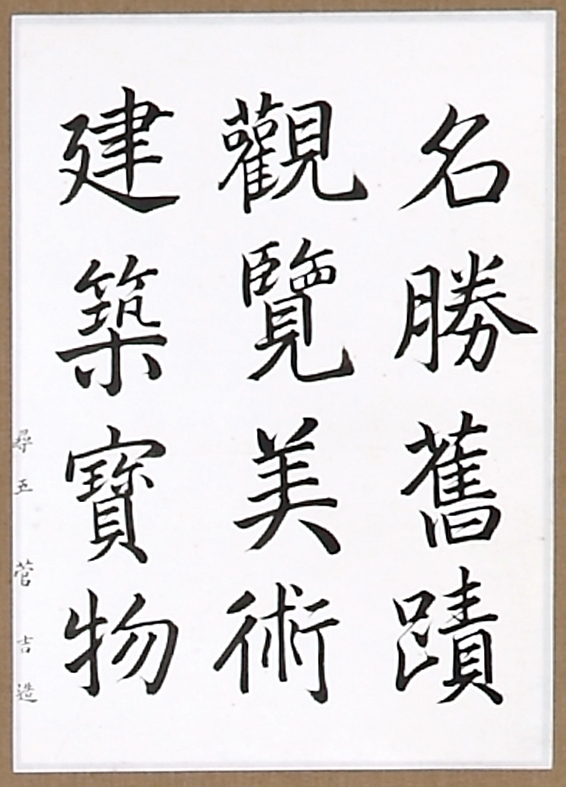 名勝舊蹟
觀覽美術
建築寶物
尋五 菅吉造